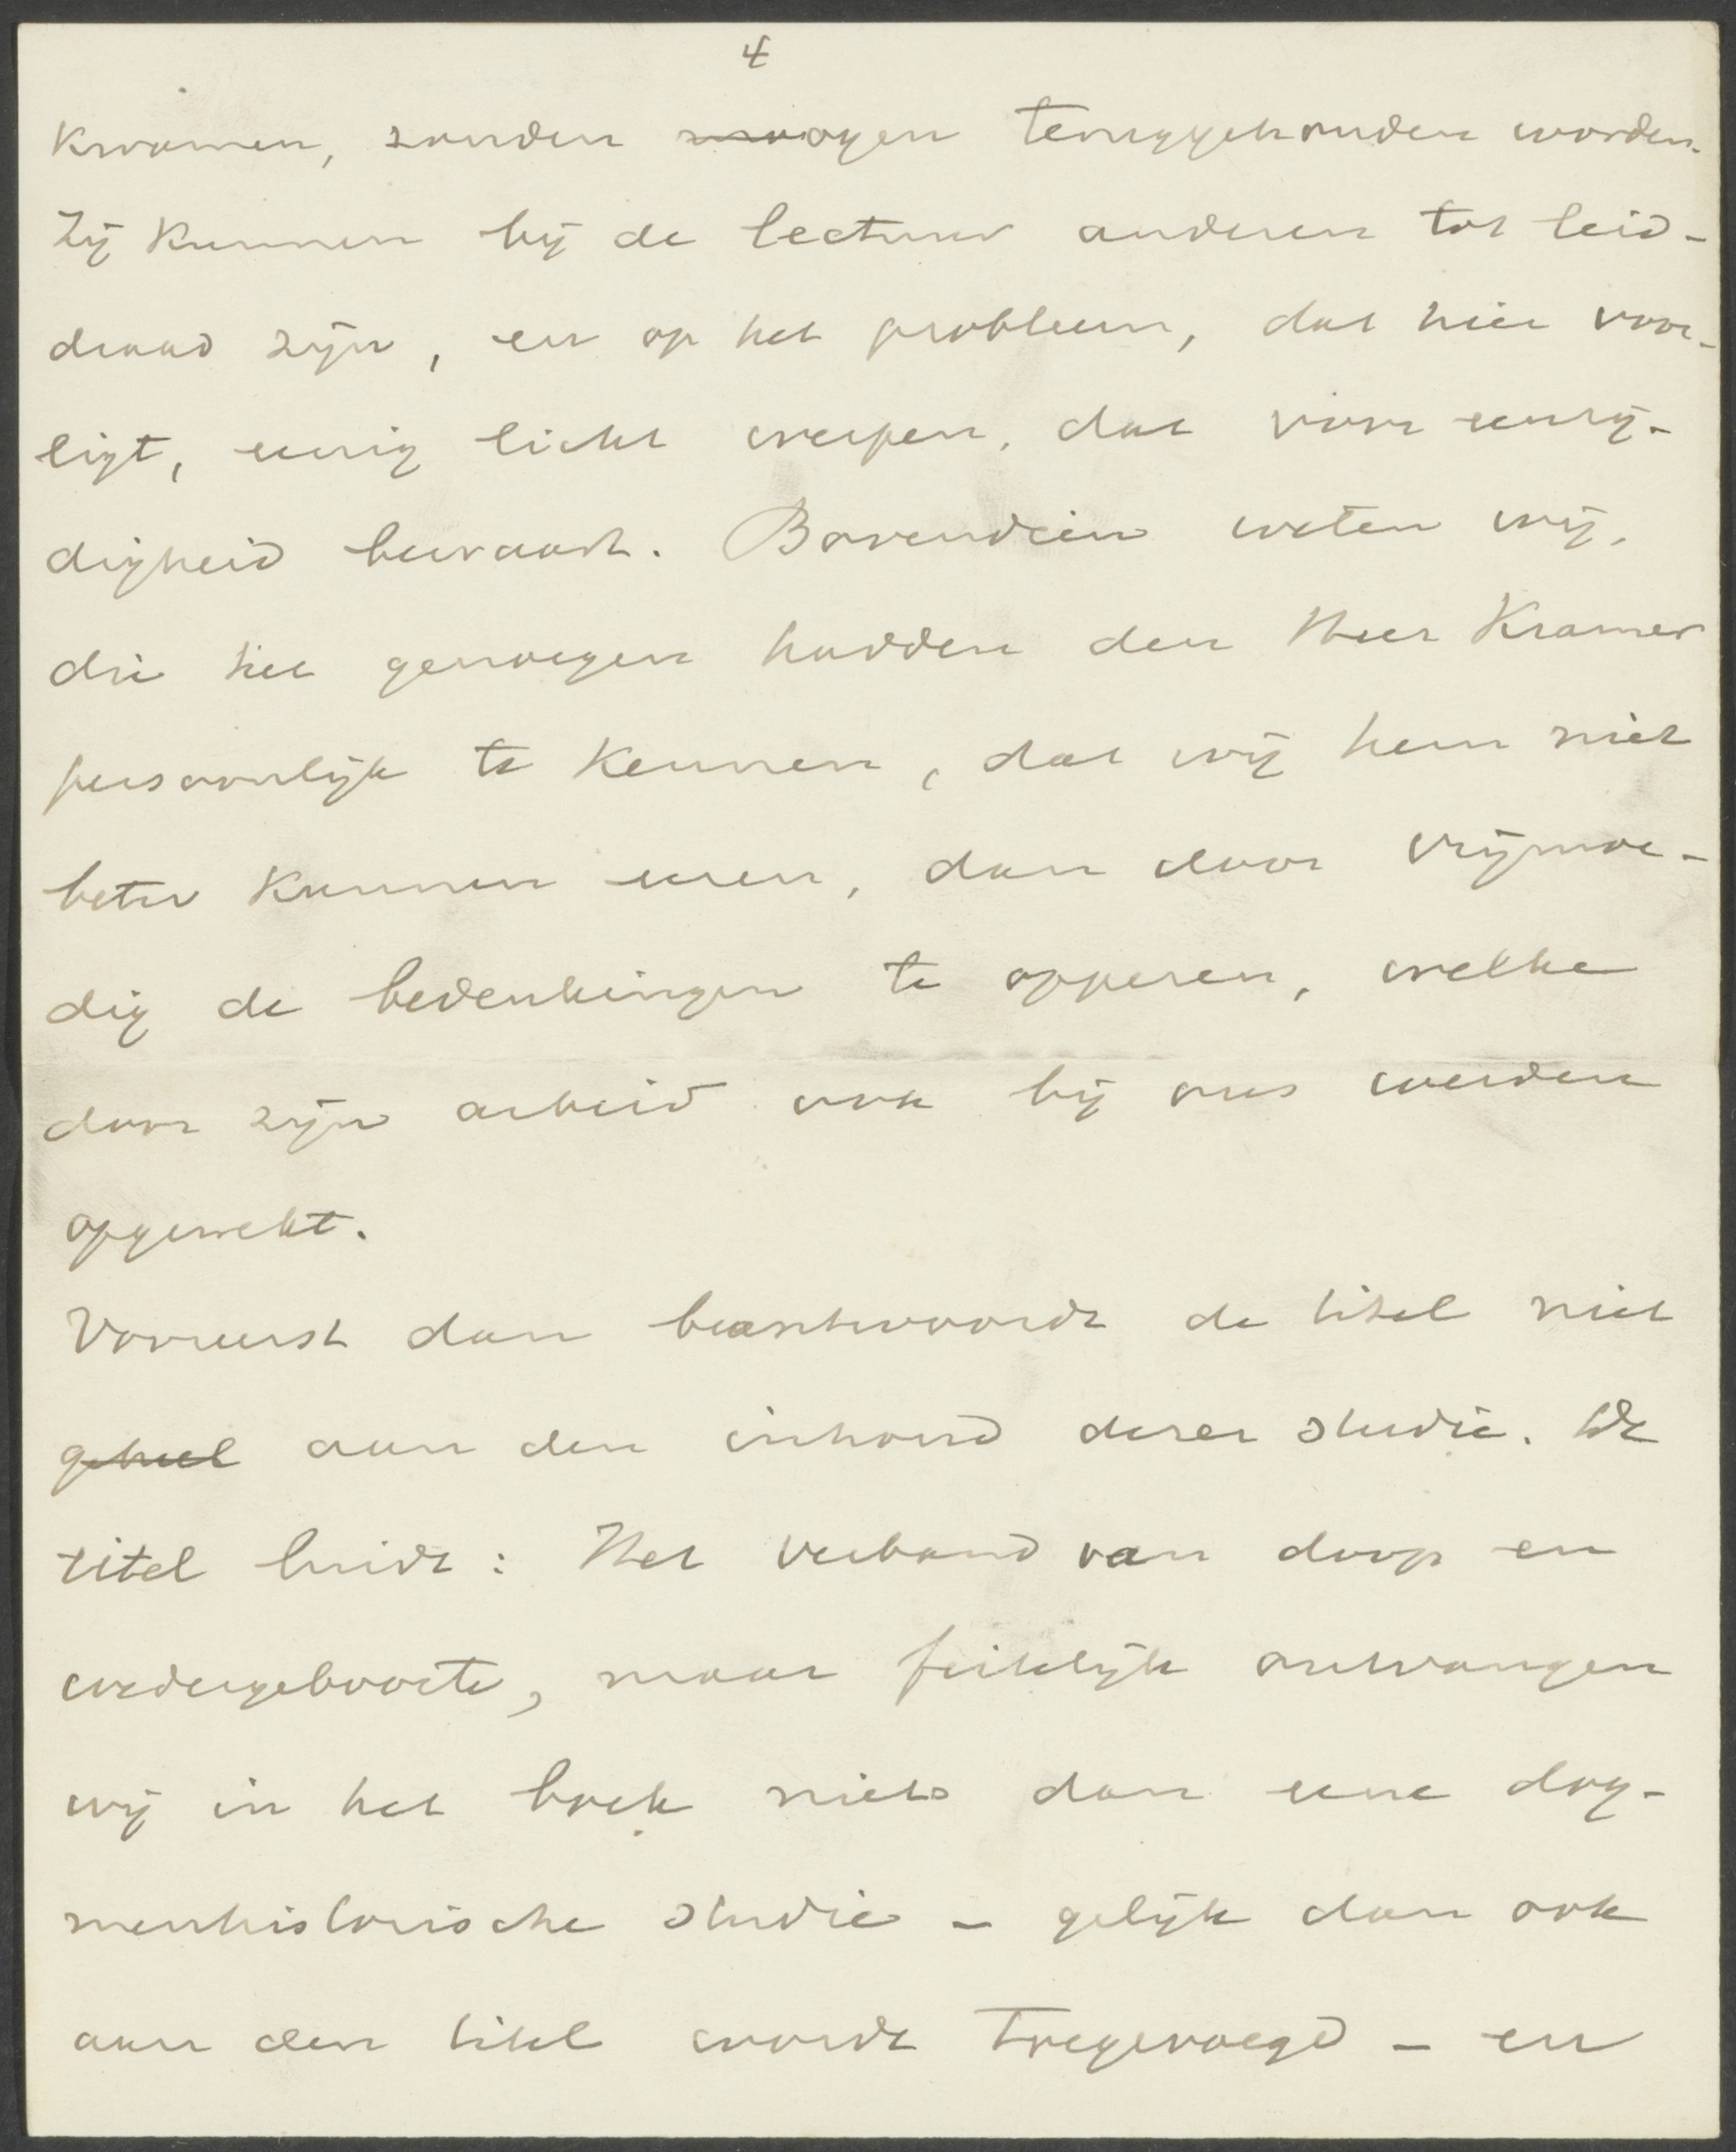 4
kwamen, zouden mogen teruggehouden worden.
Zij kunnen bij de lectuur anderen tot leid-
draad zijn, en op het probleem, dat hier voor-
ligt, eenig licht werpen, dat voor eenzij-
digheid bewaart. Bovendien weten wij,
die het genoegen hadden den Heer Kramer
persoonlijk te kennen, dat wij hem niet
beter kunnen eeren, dan door vrijmoe-
dig de bedenkingen te opperen, welke
door zijn arbeid ook bij ons werden
opgewekt.
Vooreerst dan beantwoordt de titel niet
geheel aan den inhoud dezer studie. De
titel luidt: Het verband van doop en
wedergeboorte, maar feitelijk ontvangen
wij in het boek niets dan eene dog-
menhistorische studie - gelijk dan ook
aan den titel wordt toegevoegd - en